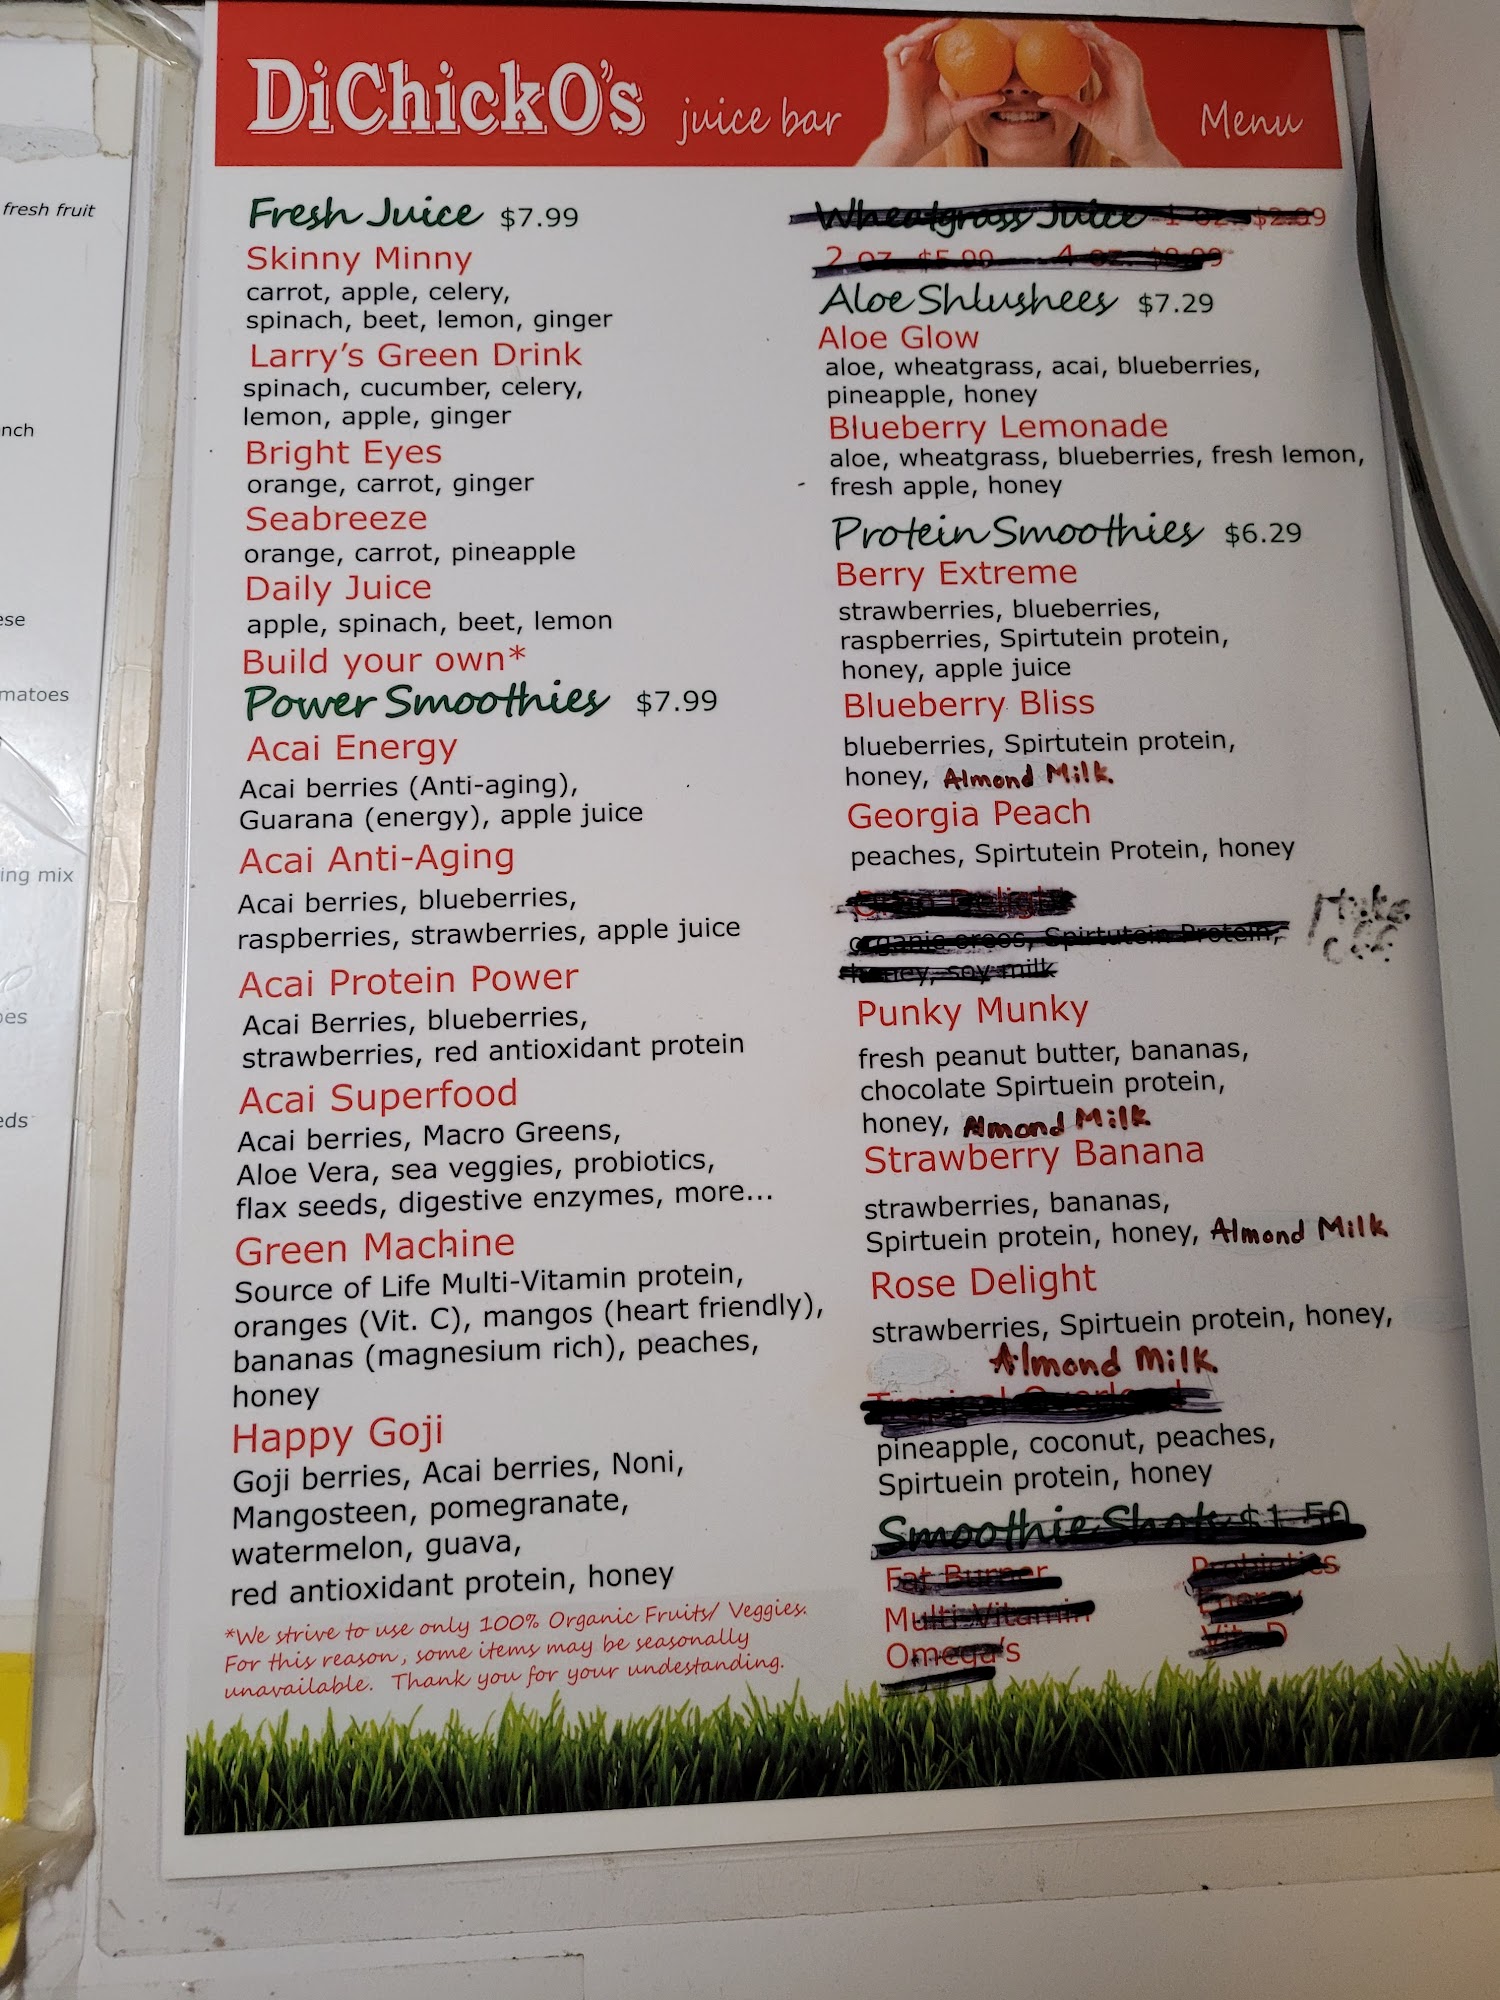 DiChickO's juice bar Menu
fresh fruit
nch
ese
matoes
ing mix
oes
eds
Fresh Juice $7.99
Skinny Minny
carrot, apple, celery,
spinach, beet, lemon, ginger
Larry's Green Drink
spinach, cucumber, celery,
lemon, apple, ginger
Bright Eyes
orange, carrot, ginger
Seabreeze
orange, carrot, pineapple
Daily Juice
apple, spinach, beet, lemon
Build your own*
Power Smoothies $7.99
Acai Energy
Acai berries (Anti-aging),
Guarana (energy), apple juice
Acai Anti-Aging
Acai berries, blueberries,
raspberries, strawberries, apple juice
Acai Protein Power
Acai Berries, blueberries,
strawberries, red antioxidant protein
Acai Superfood
Acai berries, Macro Greens,
Aloe Vera, sea veggies, probiotics,
flax seeds, digestive enzymes, more...
Green Machine
Source of Life Multi-Vitamin protein,
oranges (Vit. C), mangos (heart friendly),
bananas (magnesium rich), peaches,
honey
Happy Goji
Goji berries, Acai berries, Noni,
Mangosteen, pomegranate,
watermelon, guava,
red antioxidant protein, honey
*We strive to use only 100% Organic Fruits/ Veggies.
For this reason, some items may be seasonally
unavailable. Thank you for your undestanding.
Wheatgrass Juice 1 oz. $2.99
2 oz. $5.99 4 oz. $8.99
Aloe Shlushees $7.29
Aloe Glow
aloe, wheatgrass, acai, blueberries,
pineapple, honey
Blueberry Lemonade
aloe, wheatgrass, blueberries, fresh lemon,
fresh apple, honey
Protein Smoothies $6.29
Berry Extreme
strawberries, blueberries,
raspberries, Spirtutein protein,
honey, apple juice
Blueberry Bliss
blueberries, Spirtutein protein,
honey, Almond Milk
Georgia Peach
peaches, Spirtutein Protein, honey
Delight
organic oreos, Spirtutein Protein,
honey, soy milk
Punky Munky
fresh peanut butter, bananas,
chocolate Spirtuein protein,
honey, Almond Milk
Strawberry Banana
strawberries, bananas,
Spirtuein protein, honey, Almond Milk
Rose Delight
strawberries, Spirtuein protein, honey,
Almond Milk
Tropical Overload
pineapple, coconut, peaches,
Spirtuein protein, honey
Smoothie Shots $1.50
Fat Burner Probiotics
Multi-Vitamin Energy
Omega's Vit. D